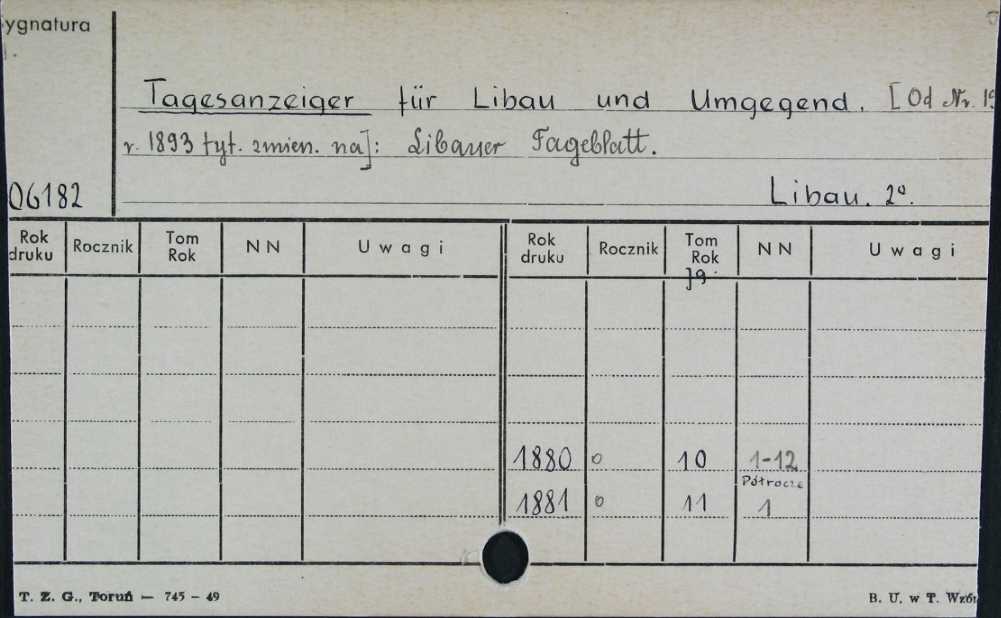 ygnatura
Tagesanzeiger für Libau und Umgegend. [Od Nr. 19
r. 1893 tyt. zmien. na]: Libauer Tageblatt.
06182
Libau. 2º.
Rok druku Rocznik Tom Rok NN Uwagi Rok druku Rocznik Tom Rok NN Uwagi
Jg.
1880 0 10 1-12
Półrocze
1881 0 11 1
T. Z. G., Toruń — 745 – 49
B. U. w T. Wzó